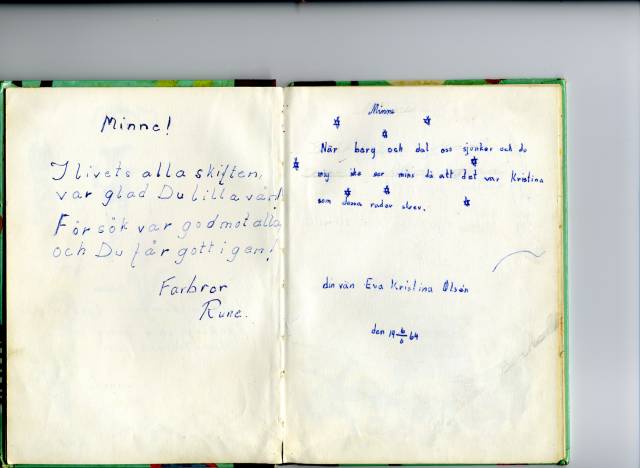 Minne!
I livets alla skiften,
var glad Du lilla vän!
Försök var god mot alla
och Du får gott igen!
Farbror
Rune.
Minne
När berg och dal oss sjunker och du
mig ike ser mins då att det var Kristina
som dessa rader skrev.
din vän Eva Kristina Olsén
den 19 6/6 64